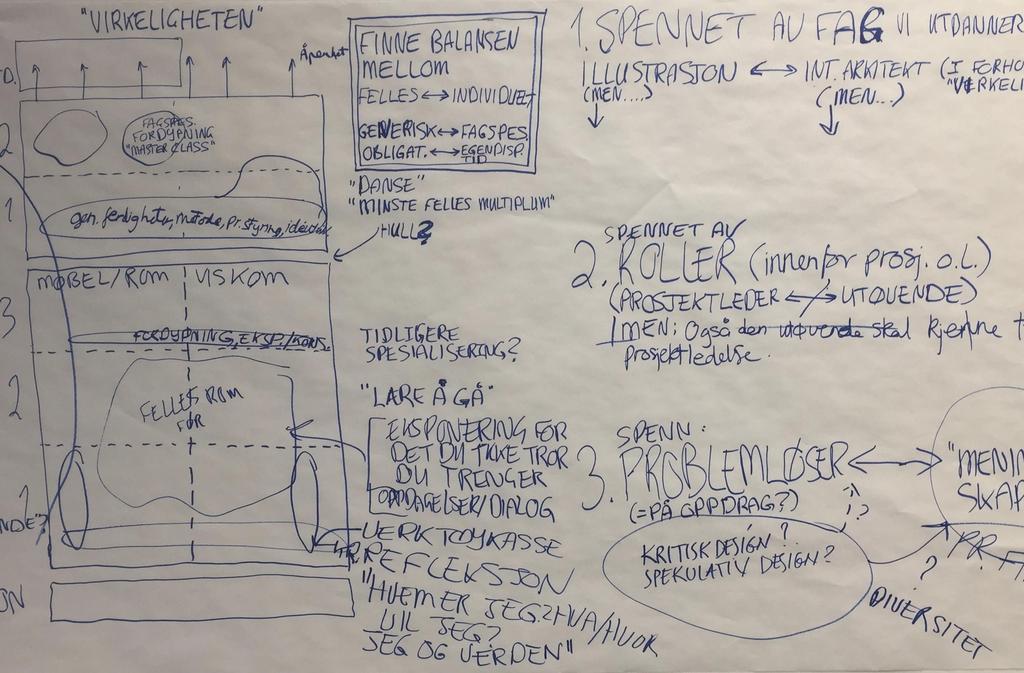 "VIRKELIGHETEN"
D.
Åpenhet
2
FAGSPES.
FORDYPNING
"MASTERCLASS"
1
gen. ferdigheter, metode, pr. styring,
MØBEL/ROM VISKOM
3
FORDYPNING, EKSP./KONS.
2
FELLES ROM
FOR
1
NDE?
ON
FINNE BALANSEN
MELLOM
FELLES ↔ INDIVIDUELT
GENERISK ↔ FAGSPES.
OBLIGAT. ↔ EGENDISP.
TID
"DANSE"
"MINSTE FELLES MULTIPLUM"
HULL?
TIDLIGERE
SPESIALISERING?
"LÆRE Å GÅ"
EKSPONERING FOR
DET DU IKKE TROR
DU TRENGER
OPPDAGELSER/DIALOG
VERKTØYKASSE
REFLEKSJON
"HVEM ER JEG? HVA/HVOR
VIL JEG?
JEG OG VERDEN"
1. SPENNET AV FAG VI UTDANNER
ILLUSTRASJON ↔ INT. ARKITEKT (I FORHO
(MEN....) (MEN...) "VIRKELI
SPENNET AV
2. ROLLER (innenfor prosj. o.l.)
(PROSJEKTLEDER ↔ UTØVENDE)
MEN: Også den utøvende skal kjenne t
prosjektledelse.
SPENN:
3. PROBLEMLØSER ↔ "MENIN
SKAP
(=PÅ OPPDRAG?)
?
?
KRITISK DESIGN ?
SPEKULATIV DESIGN?
PR. F
?
DIVERSITET